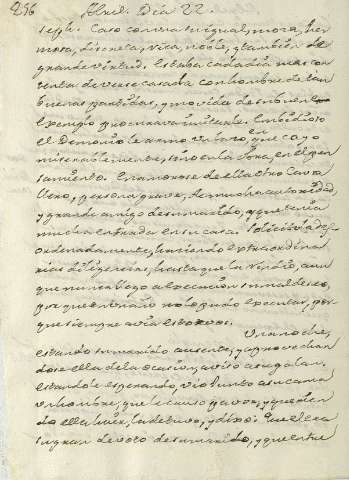 296 Abril. Dia 22.
seph. Caso con su igual, moza, her
mosa, discreta, rica, noble, y tambien de
grande virtud. Estaba cada dia mas con
tenta de verse casada con hombre de tan
buenas partidas, y movida de su buen
exemplo procurava imitarle. Embidioso
el Demonio le armo un lazo, en que cayo
miserablemente, sino en la obra, en el pen
samiento. Enamorose de ella otro Cava
llero, persona grave, de mucha autoridad,
y grande amigo de su marido, y que tenia
mucha entrada en su casa. Solicitola des
ordenadamente, haciendo extraordina
rias diligencias, hasta que la rindio, aun
que nunca llego a execucion su mal deseo,
porque entrambos no lo pudo executar, por
que siempre avia estorvos.
Una noche,
estando su marido ausente, y aprovechan
dose ella de la ocasion, aviso a su galan,
estandole esperando, vio junto a su cama
un hombre, que le causo pavor, y querien
do ella huir, la detuvo, y dixo: Que el era
un gran devoto de su marido, y que entre